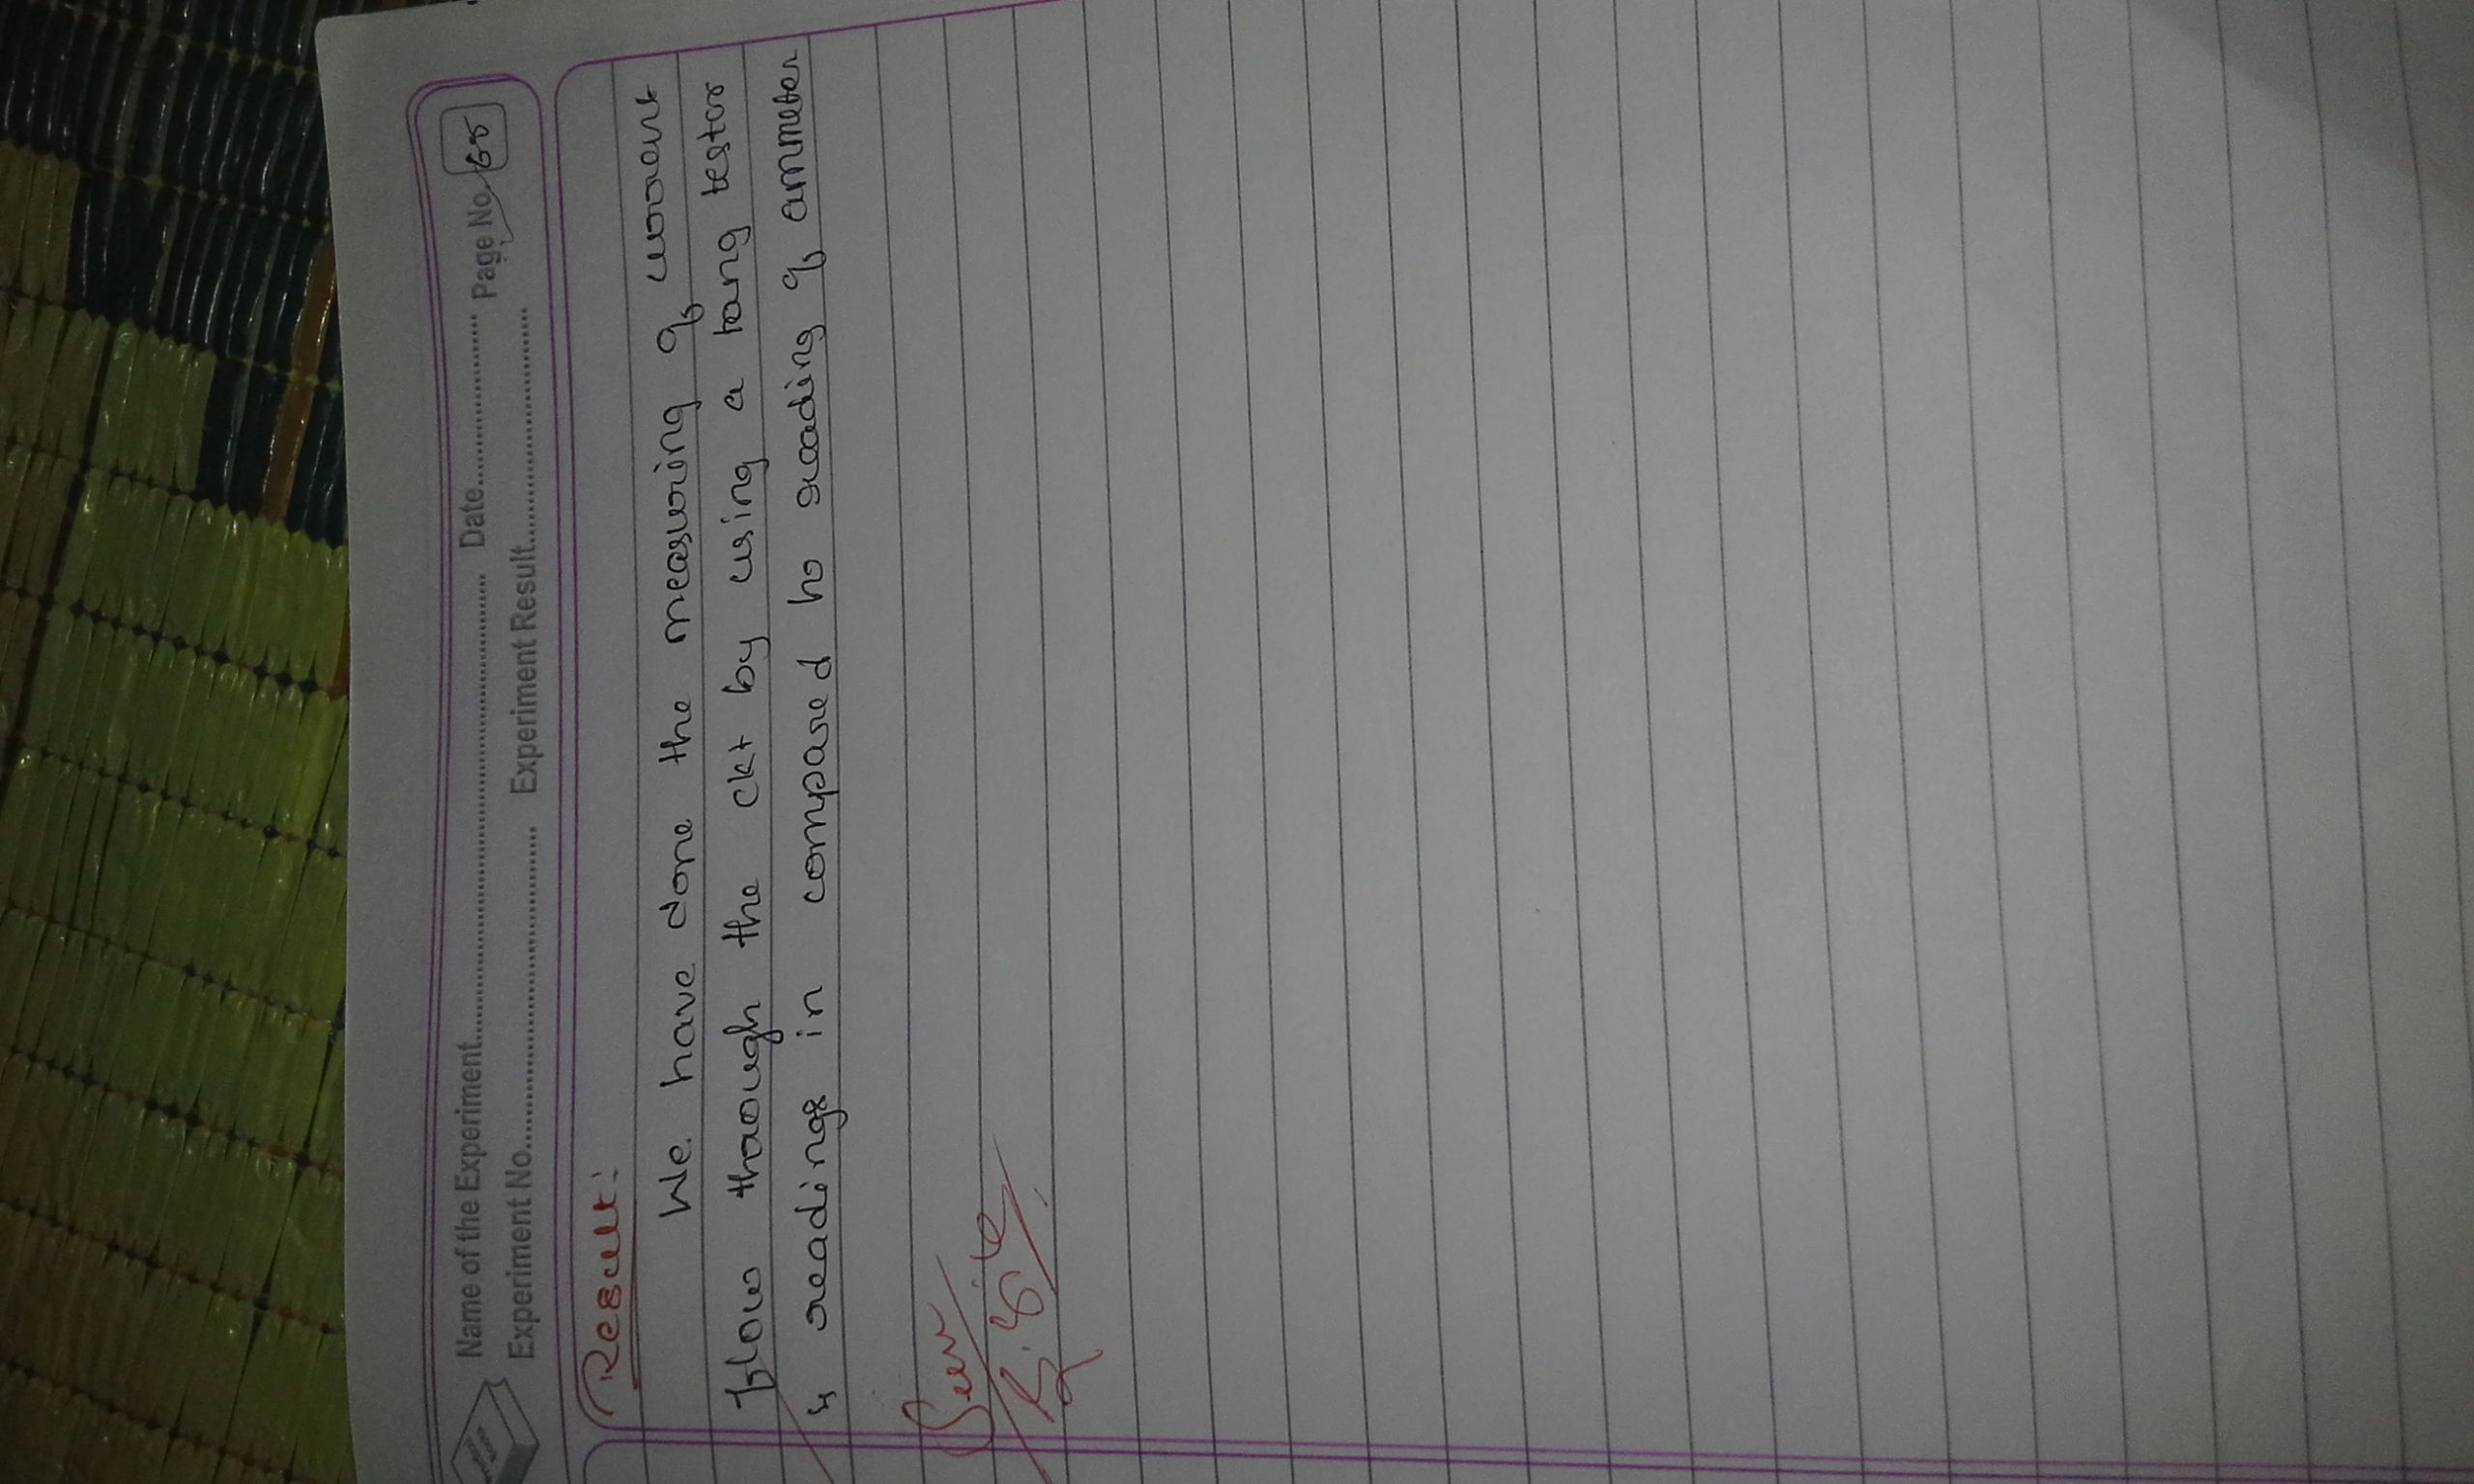 Name of the Experiment........ Date........ Page No. 65
Experiment No........ Experiment Result........
Result:
We have done the measuring of current
flow through the ckt by using a tong tester
& readings in compared to reading of ammeter